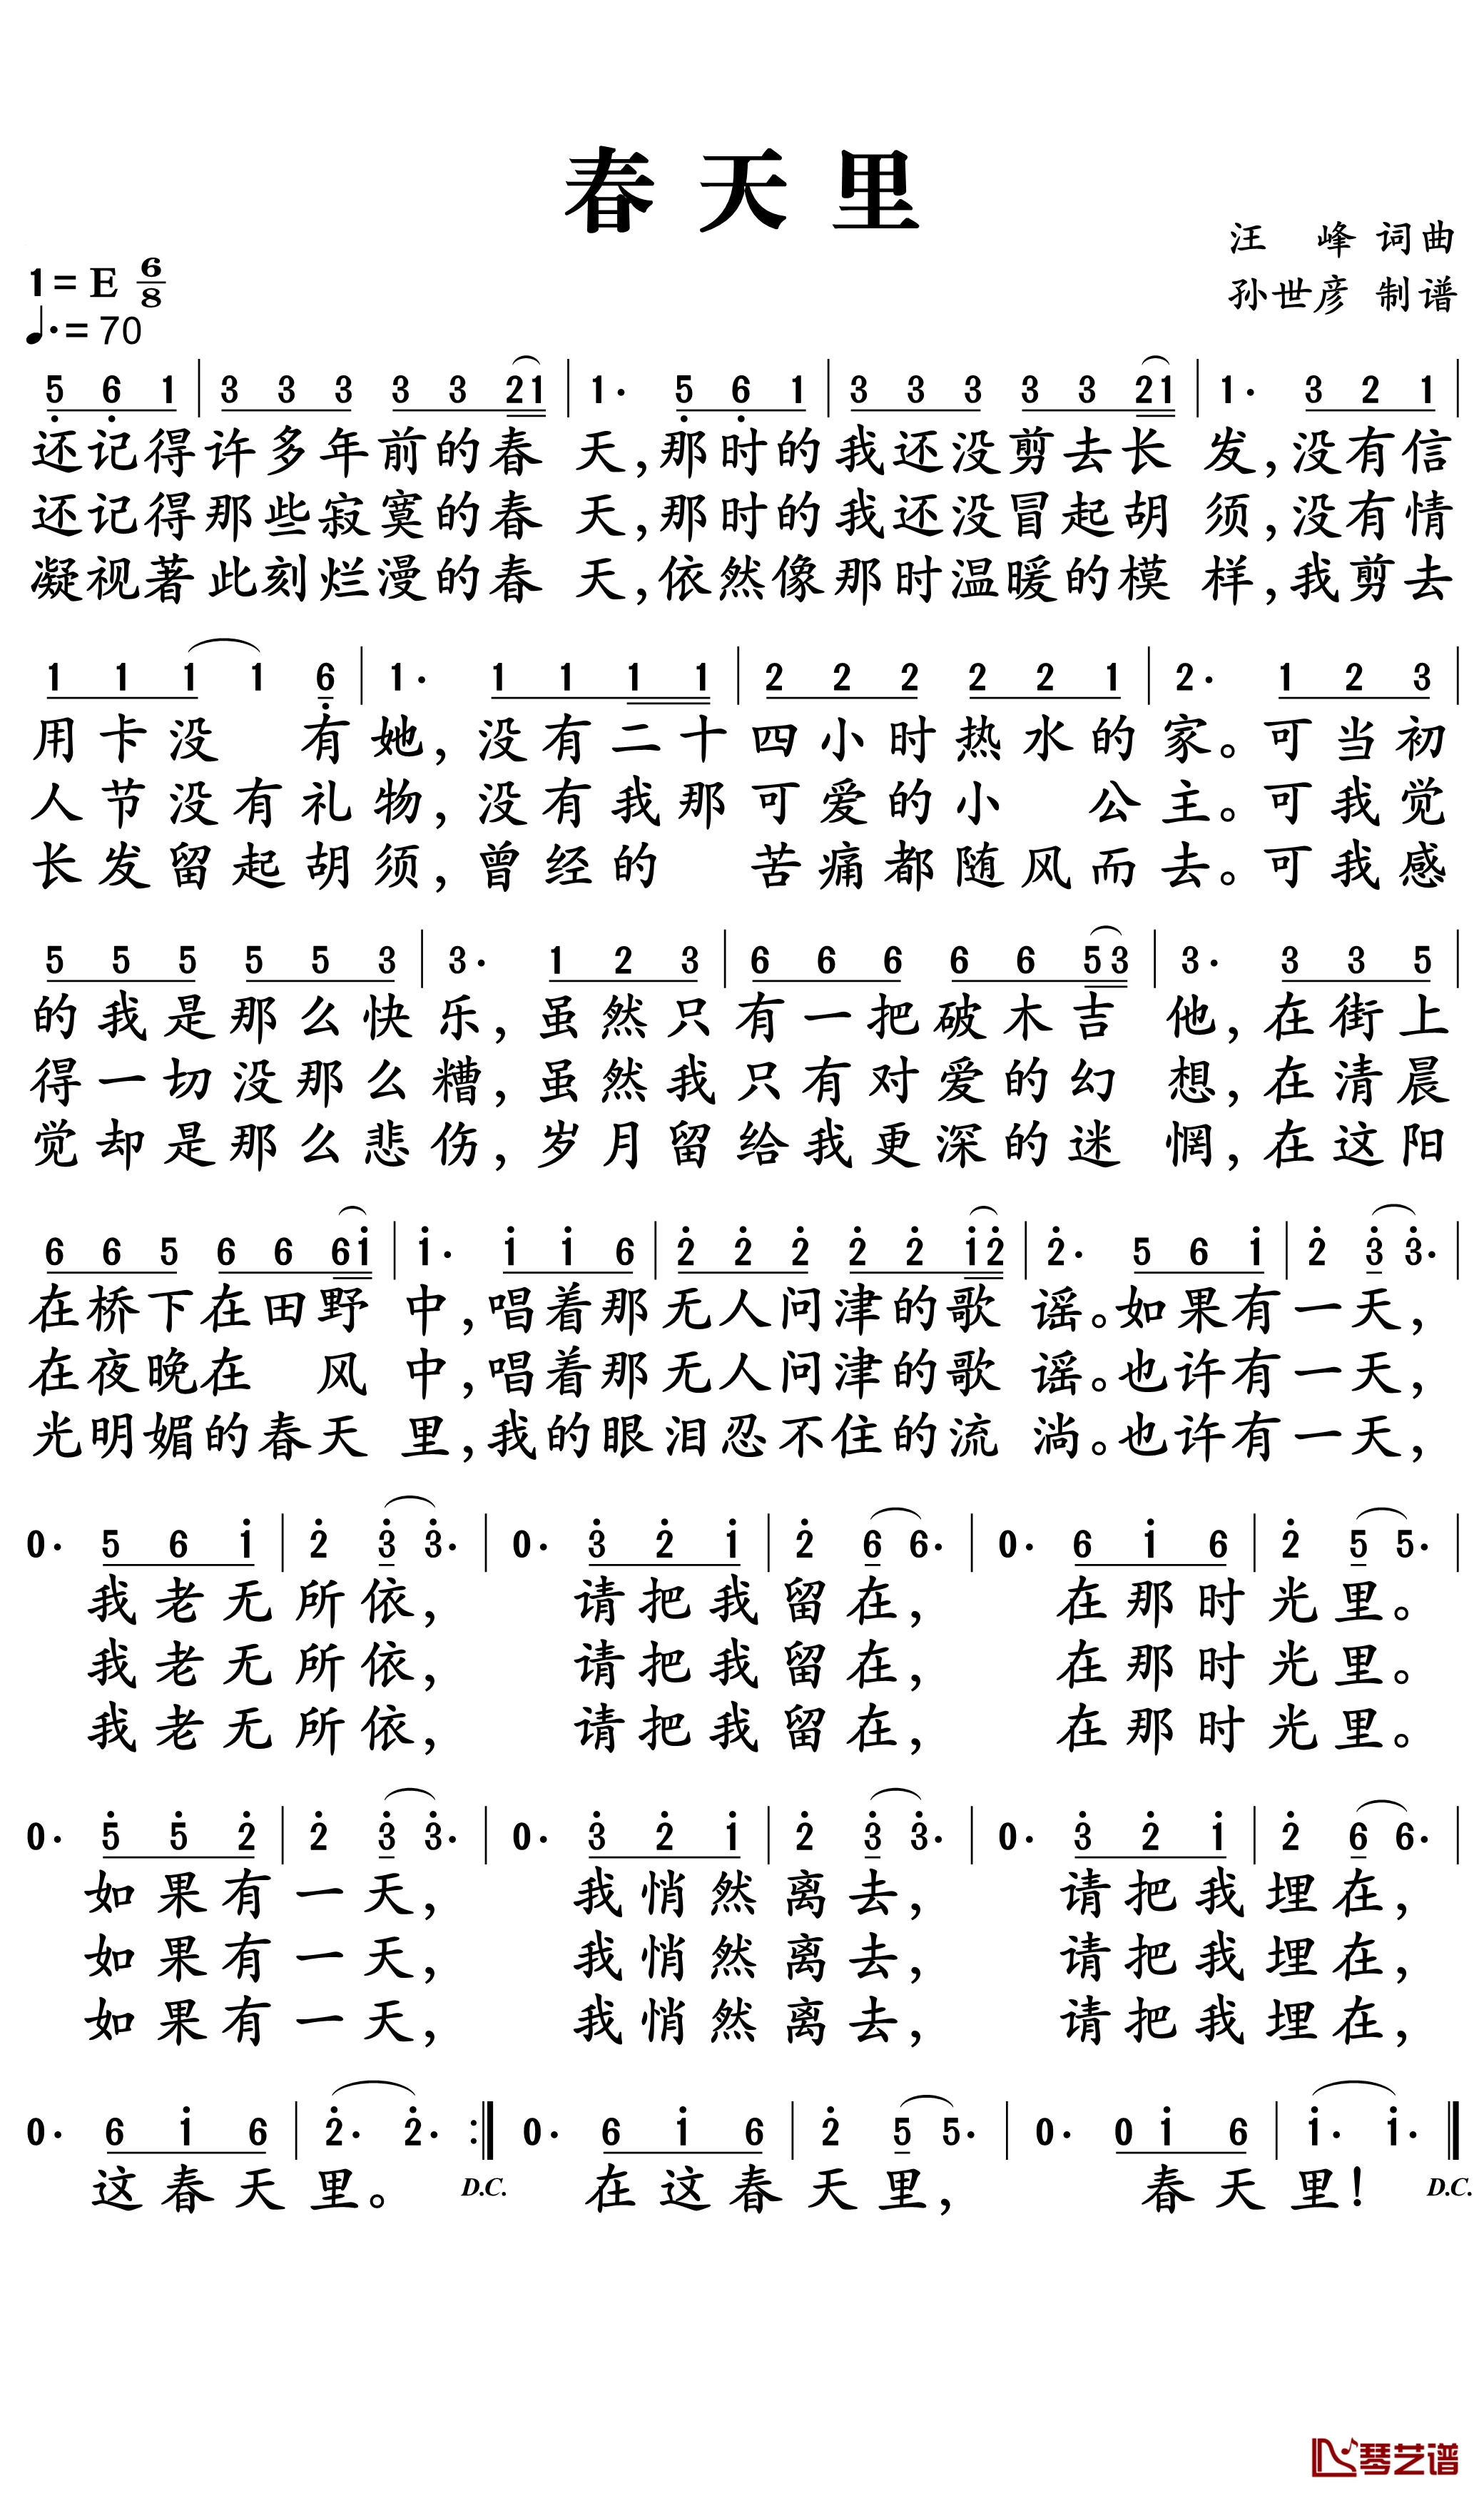 春天里
汪 峰 词曲
孙世彦 制谱
1=E 6/8
♩.=70
5 6 1 | 3 3 3 3 3 21 | 1· 5 6 1 | 3 3 3 3 3 21 | 1· 3 2 1 |
还记得许多年前的春 天,那时的我还没剪去长 发,没有信
还记得那些寂寞的春 天,那时的我还没冒起胡 须,没有情
凝视著此刻烂漫的春 天,依然像那时温暖的模 样,我剪去
1 1 1 1 6 | 1· 1 1 1 1 | 2 2 2 2 2 1 | 2· 1 2 3 |
用卡没 有她,没有二十四小时热水的家。可当初
人节没有礼物,没有我那可爱的小 公主。可我觉
长发留起胡须,曾经的 苦痛都随风而去。可我感
5 5 5 5 5 3 | 3· 1 2 3 | 6 6 6 6 6 53 | 3· 3 3 5 |
的我是那么快乐,虽然只有一把破木吉 他,在街上
得一切没那么糟,虽然我只有对爱的幻 想,在清晨
觉却是那么悲伤,岁月留给我更深的迷 惘,在这阳
6 6 5 6 6 61 | 1· 1 1 6 | 2 2 2 2 2 12 | 2· 5 6 1 | 2 3 3· |
在桥下在田野 中,唱着那无人问津的歌 谣。如果有一天,
在夜晚在 风 中,唱着那无人问津的歌 谣。也许有一天,
光明媚的春天 里,我的眼泪忍不住的流 淌。也许有一天,
0· 5 6 1 | 2 3 3· | 0· 3 2 1 | 2 6 6· | 0· 6 1 6 | 2 5 5· |
我老无所依, 请把我留在, 在那时光里。
我老无所依, 请把我留在, 在那时光里。
我老无所依, 请把我留在, 在那时光里。
0· 5 5 2 | 2 3 3· | 0· 3 2 1 | 2 3 3· | 0· 3 2 1 | 2 6 6· |
如果有一天, 我悄然离去, 请把我埋在,
如果有一天, 我悄然离去, 请把我埋在,
如果有一天, 我悄然离去, 请把我埋在,
0· 6 1 6 | 2· 2· :| 0· 6 1 6 | 2 5 5· | 0· 0 1 6 | 1· 1· |
这春天里。 D.C. 在这春天里, 春天里! D.C.
琴艺谱